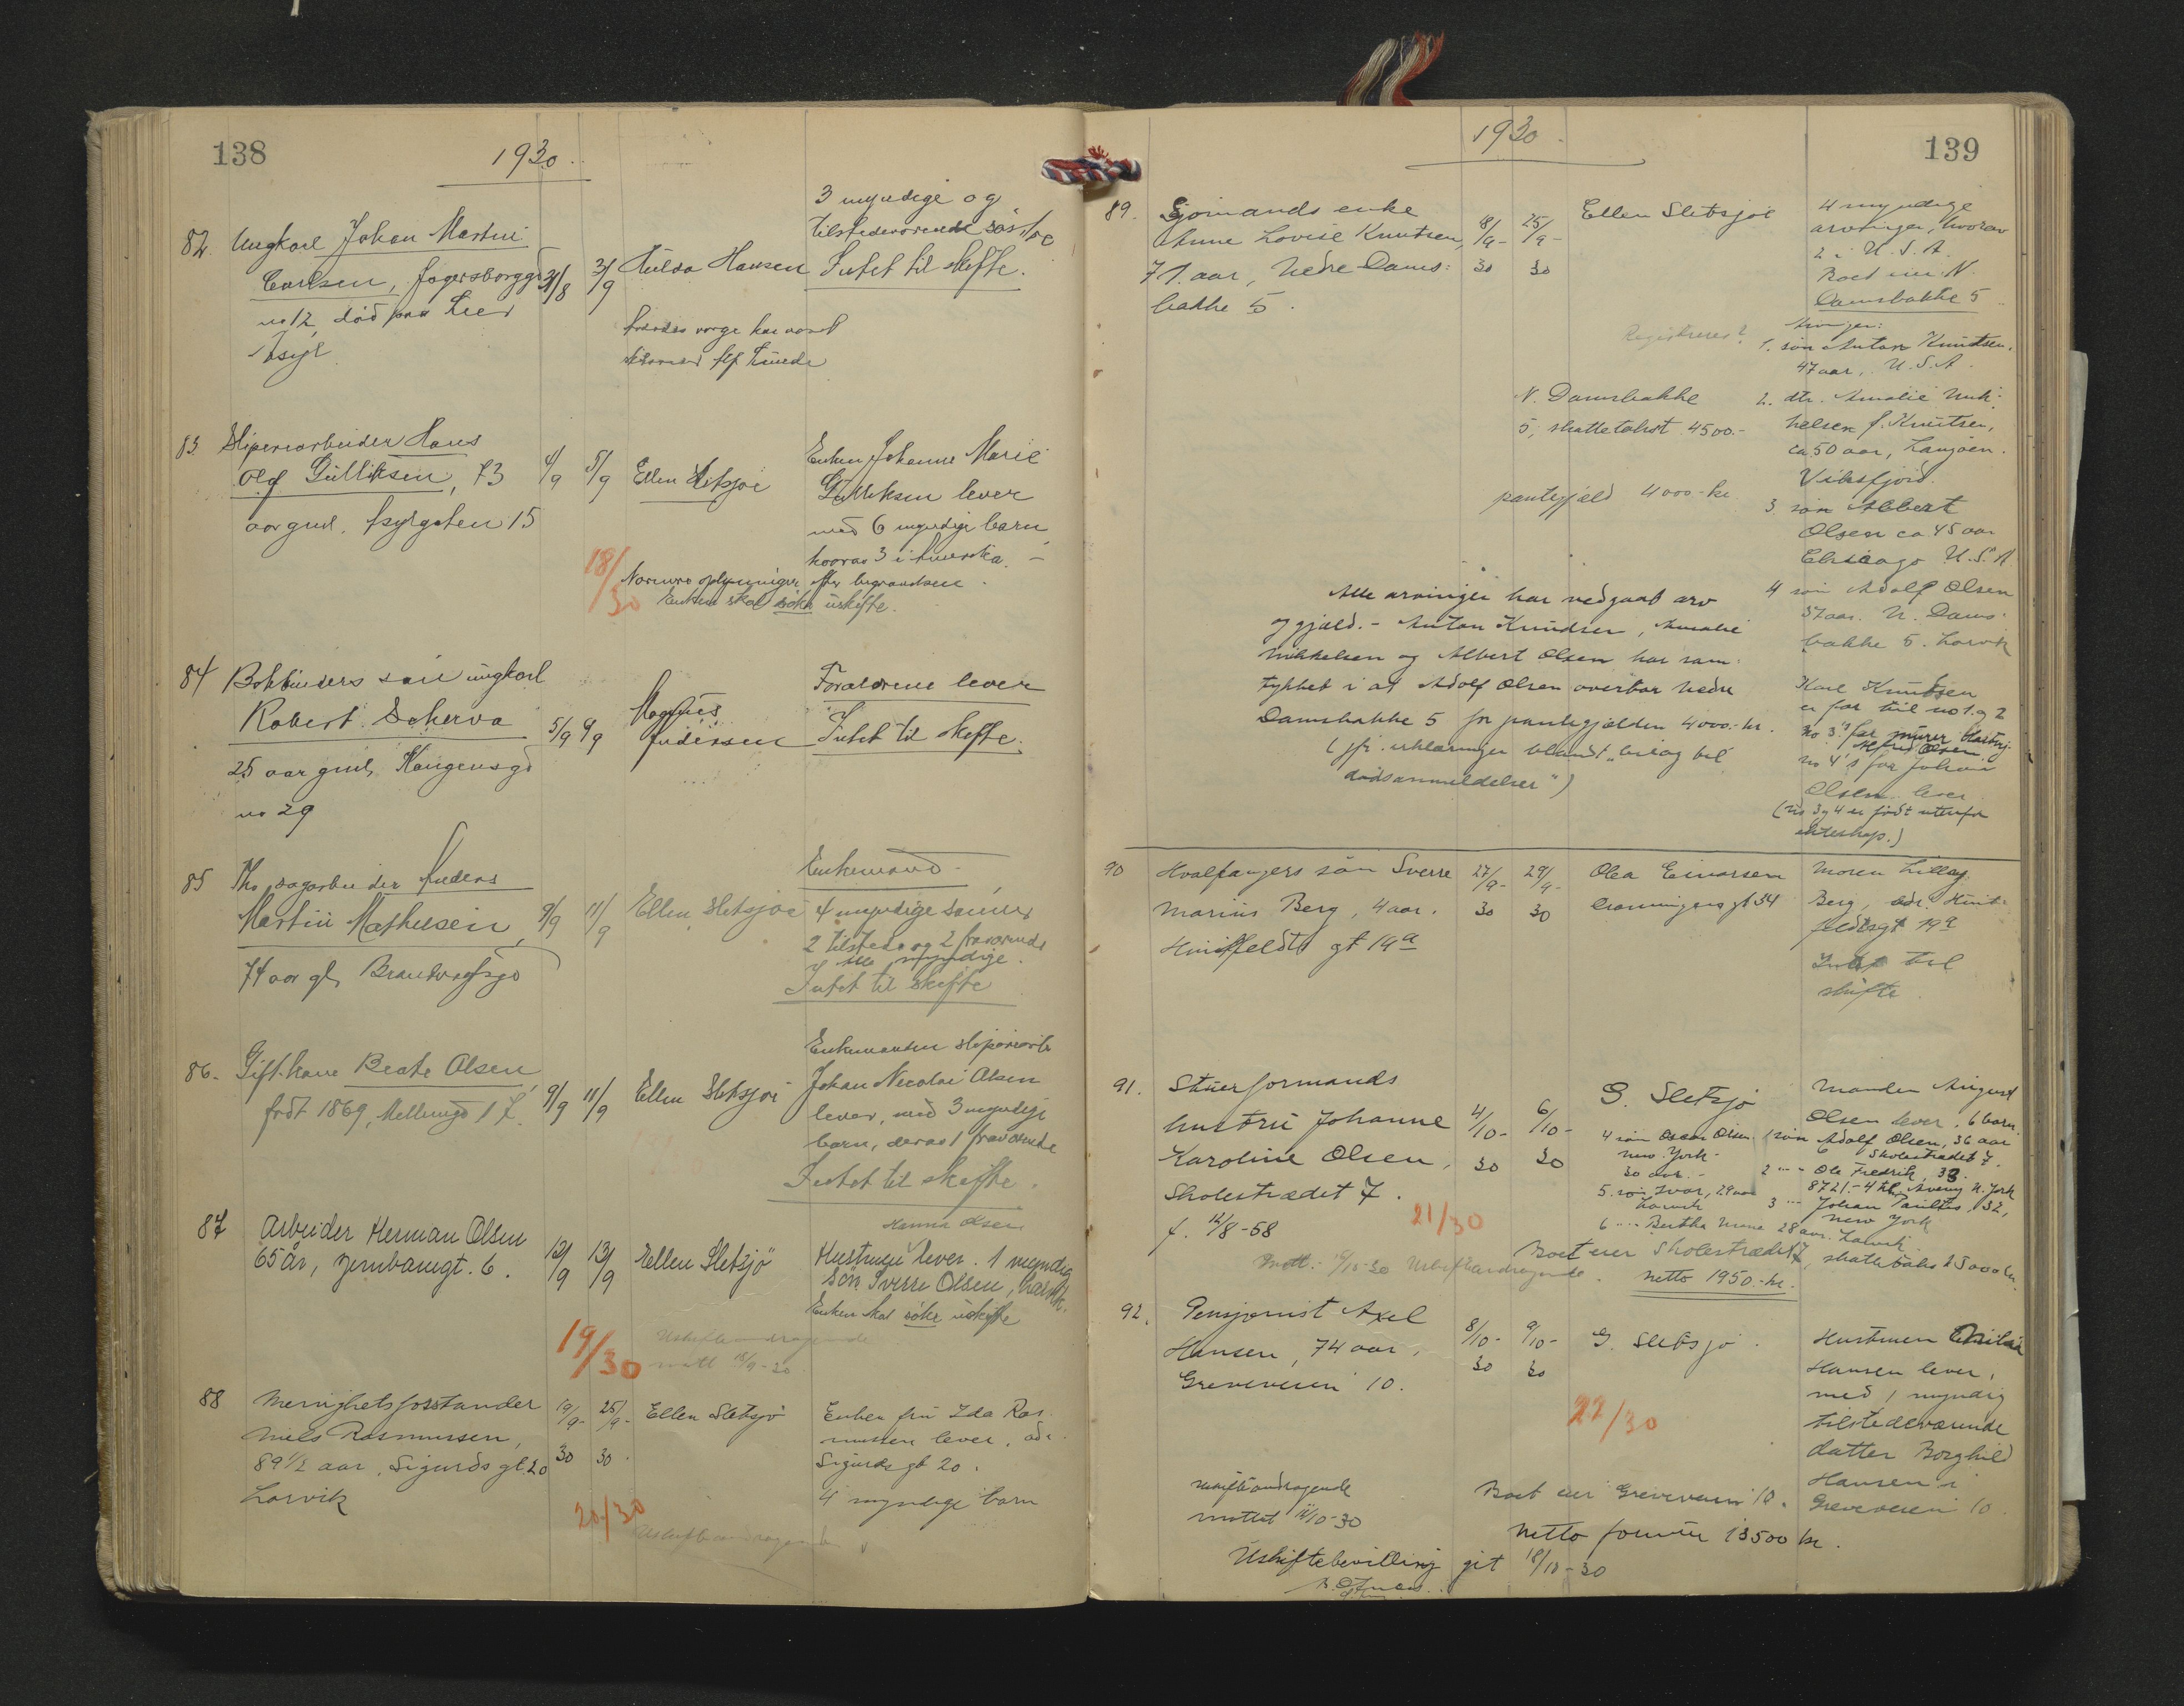 138
1930
82. Ungkarl Johan Martin
Carlsen, Fagersborggd
no 12, död paa Lier
Asyl
31/8
3/9
Hulda Hansen
3 myndige og
tilstedeværende søstre
Intet til skifte.
83 Sliperiarbeider Hans
Olaf Gulliksen, 73
aar gml. Asylgaten 15
4/9
5/9
Ellen Sletsjøe
Enken Johanne Marie
Gulliksen lever
med 6 myndige barn
hvorav 3 i Amerika. -
18/30
Nærmere oplysninger efter begravelsen.
Enken skal søke uskifte.
84 Bokbinders søn ungkarl
Robert Scherva
25 aar gml, Kongensgd
no 29
5/9 9/9
Magnus
Andersen
Forældrene lever
Intet til skifte.
85 Fhv sagarbeider Anders
Martin Mathisen,
74 aar gl, Brandvagtsgd
9/9
11/9
Ellen Sletsjøe
Enkemand.
4 myndige sønner
2 tilstede og 2 fraværende
alle myndige.
Intet til skifte
86. Gift kone Beate Olsen,
født 1869, Mellemgd 17.
9/9
11/9
Ellen Sletsjøe
Enkemanden sliperiarb
Johan Nicolai Olsen
lever, med 3 myndige
barn, derav 1 fraværende
Intet til skifte.
87 Arbeider Herman Olsen
65 år, Jernbanegt. 6.
12/9
13/9
Ellen Sletsjö
Hanna Olsen
Hustruen lever. 1 myndig
sön Sverre Olsen, Larvik.
Enken skal söke uskifte
19/30
Uskifteandragende
mott 18/9-30
88 Menighetsforstander
Niels Rasmussen,
89 1/2 aar, Sigurds gt. 20
Larvik
19/9-30
25/9-30.
Ellen Sletsjø
Enken fru Ida Ras-
mussen lever, adr.
Sigurds gt 20.
4 myndige barn
20/30
Uskifteandragende
139
1930
89. Sjømands enke
Anne Lovise Knutsen,
71 aar, Nedre Dams-
bakke 5.
18/9-30
25/9-30
Ellen Sletsjøe
4 myndige
arvinger, hvorav
2 i U.S.A.
Boet eier N.
Damsbakke 5
Registreres?
Arvinger:
1. søn Anton Knudsen,
47 aar, U.S.A.
N. Damsbakke
5, skattetakst 4500.-
2. dtr. Amalie Mik-
kelsen f. Knutsen,
ca 50 aar, Langøen.
Viksfjord.
pantegjæld 4000-kr.
3. søn Albert
Olsen ca 45 aar
Chicago U.S.A.
4 søn Adolf Olsen
37 aar. N. Dams-
bakke 5. Larvik
Alle arvinger har vedgaat arv
og gjæld. - Anton Knudsen, Amalie
Mikkelsen og Albert Olsen har sam-
tykket i at Adolf Olsen overtar Nedre
Damsbakke 5 for pantegjælden 4000.- kr.
(jfr. erklæringer blandt "bilag til
dødsanmeldelser")
Karl Knutsen
er far til no 1 og 2
no 3's far murer
Alfred Olsen
no 4's far Johan
Olsen lever
(no 3 og 4 er født utenfor
ekteskap.)
90 Hvalfangers søn Sverre
Marius Berg, 4 aar.
Huitfeldts gt 19a
27/9-30
29/9-30
Olea Einarsen
Dronningens gt 34
Moren Lillay
Berg, adr. Huit-
feldtsgt 19a
Intet til
skifte
91. Stuerformands
hustru Johanne
Karoline Olsen,
Skolestrædet 7.
f. 12/8-58
4/10-30
6/10-30
G. Sletsjø
Manden August
Olsen lever, 6 barn.
1 søn Adolf Olsen, 36 aar
Skolestrædet 7.
2 -"- Ole Fredrik, 33.
8721.-4 th. Aveny N. York
3 -"- Johan Paulus, 32,
New York
4 søn Oscar Olsen
New York -
30 aar.-
5. søn Ivar, 29 aar
Larvik
6 -"- Bertha Marie 28 aar. Larvik
21/30
Mott. 10/10-30 Uskifteandragende.
Boet eier Skolestrædet 7, skattetakst 5000 kr.
netto 1950.-kr.
92. Pensjonist Axel
Hansen, 74 aar,
Greveveien 10.
8/10-30
9/10-30
G. Sletsjø.
Hustruen Emilie
Hansen lever,
med 1 myndig
tilstedeværende
datter Borghild
Hansen i
Greveveien 10.
22/30
Uskifteandragende
mottat 14/10-30
Boet eier Greveveien 10.
Netto formue 13500 kr.
Uskiftebevilling git 18/10-30